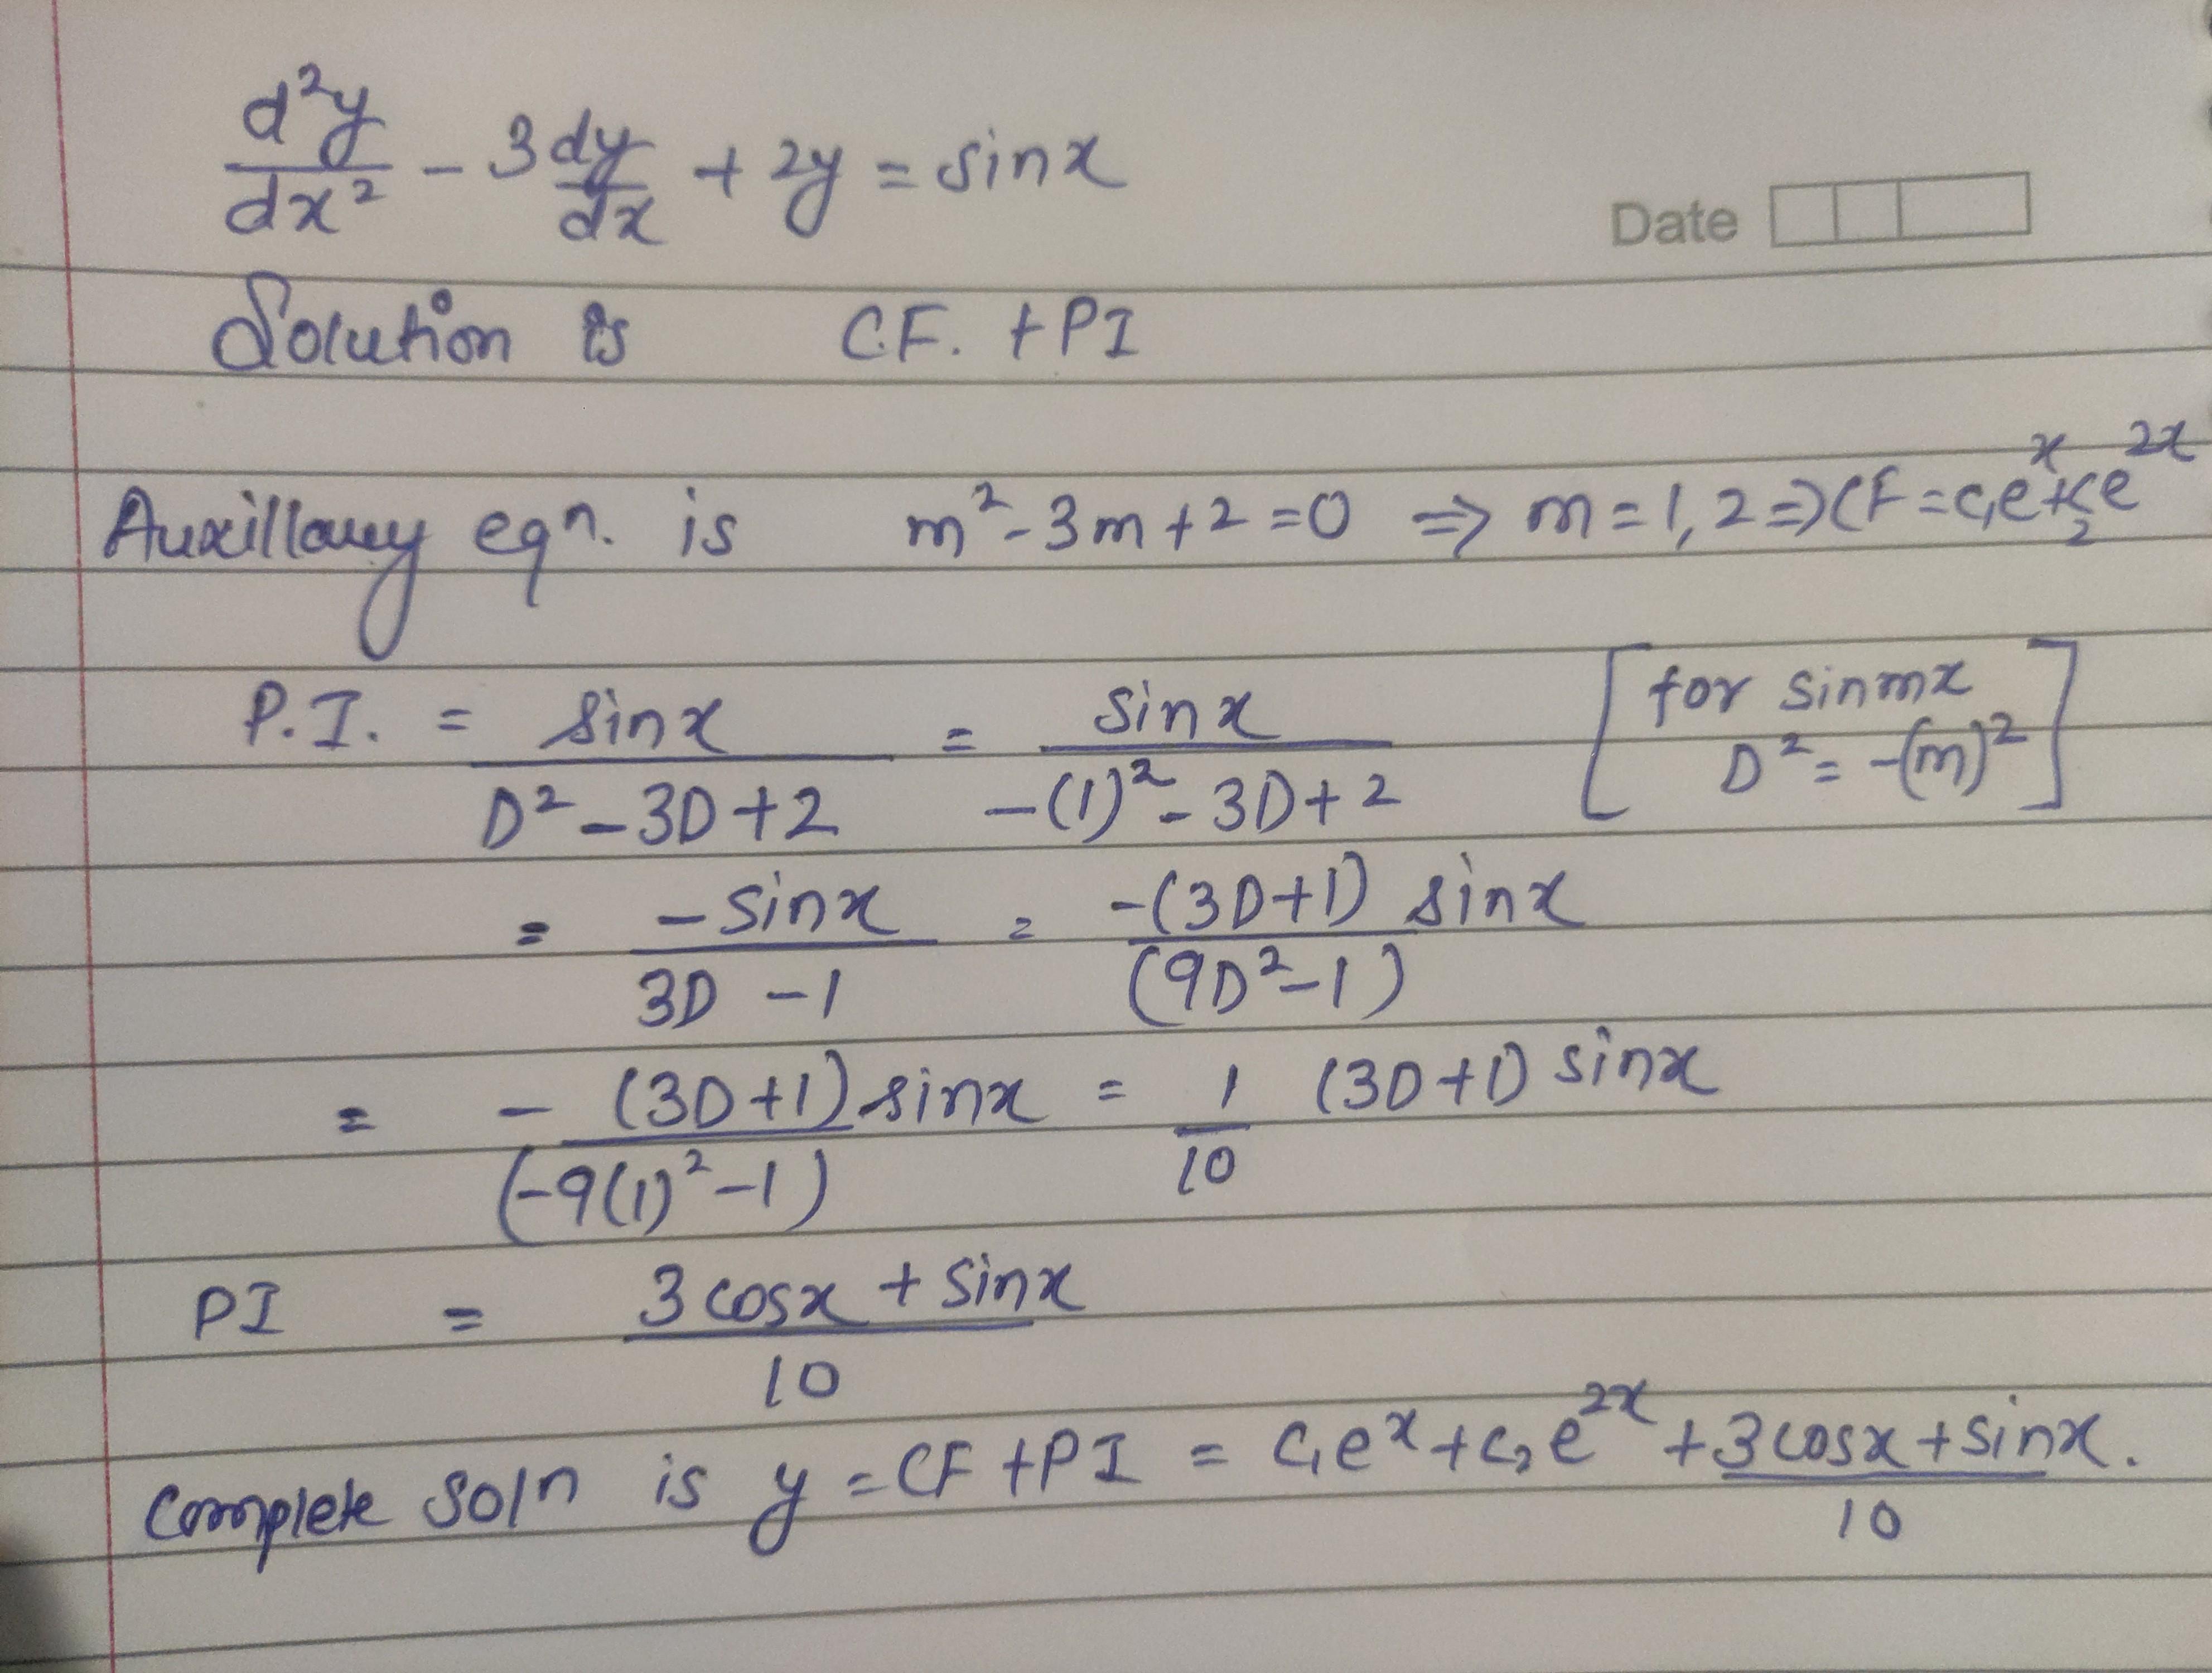 d²y/dx² - 3 dy/dx + 2y = sinx
Date
Solution is C.F. + PI
Auxillary eqn. is m² - 3m + 2 = 0 ⇒ m = 1, 2 ⇒ CF = c₁eˣ + c₂e²ˣ
P.I. = sinx/(D² - 3D + 2) = sinx/(-(1)² - 3D + 2) [for sinmx D² = -(m)²]
= -sinx/(3D - 1) = -(3D+1) sinx/(9D² - 1)
= -(3D+1) sinx/(-9(1)² - 1) = 1/10 (3D+1) sinx
PI = (3cosx + sinx)/10
Complete soln is y = CF + PI = c₁eˣ + c₂e²ˣ + (3cosx + sinx)/10.